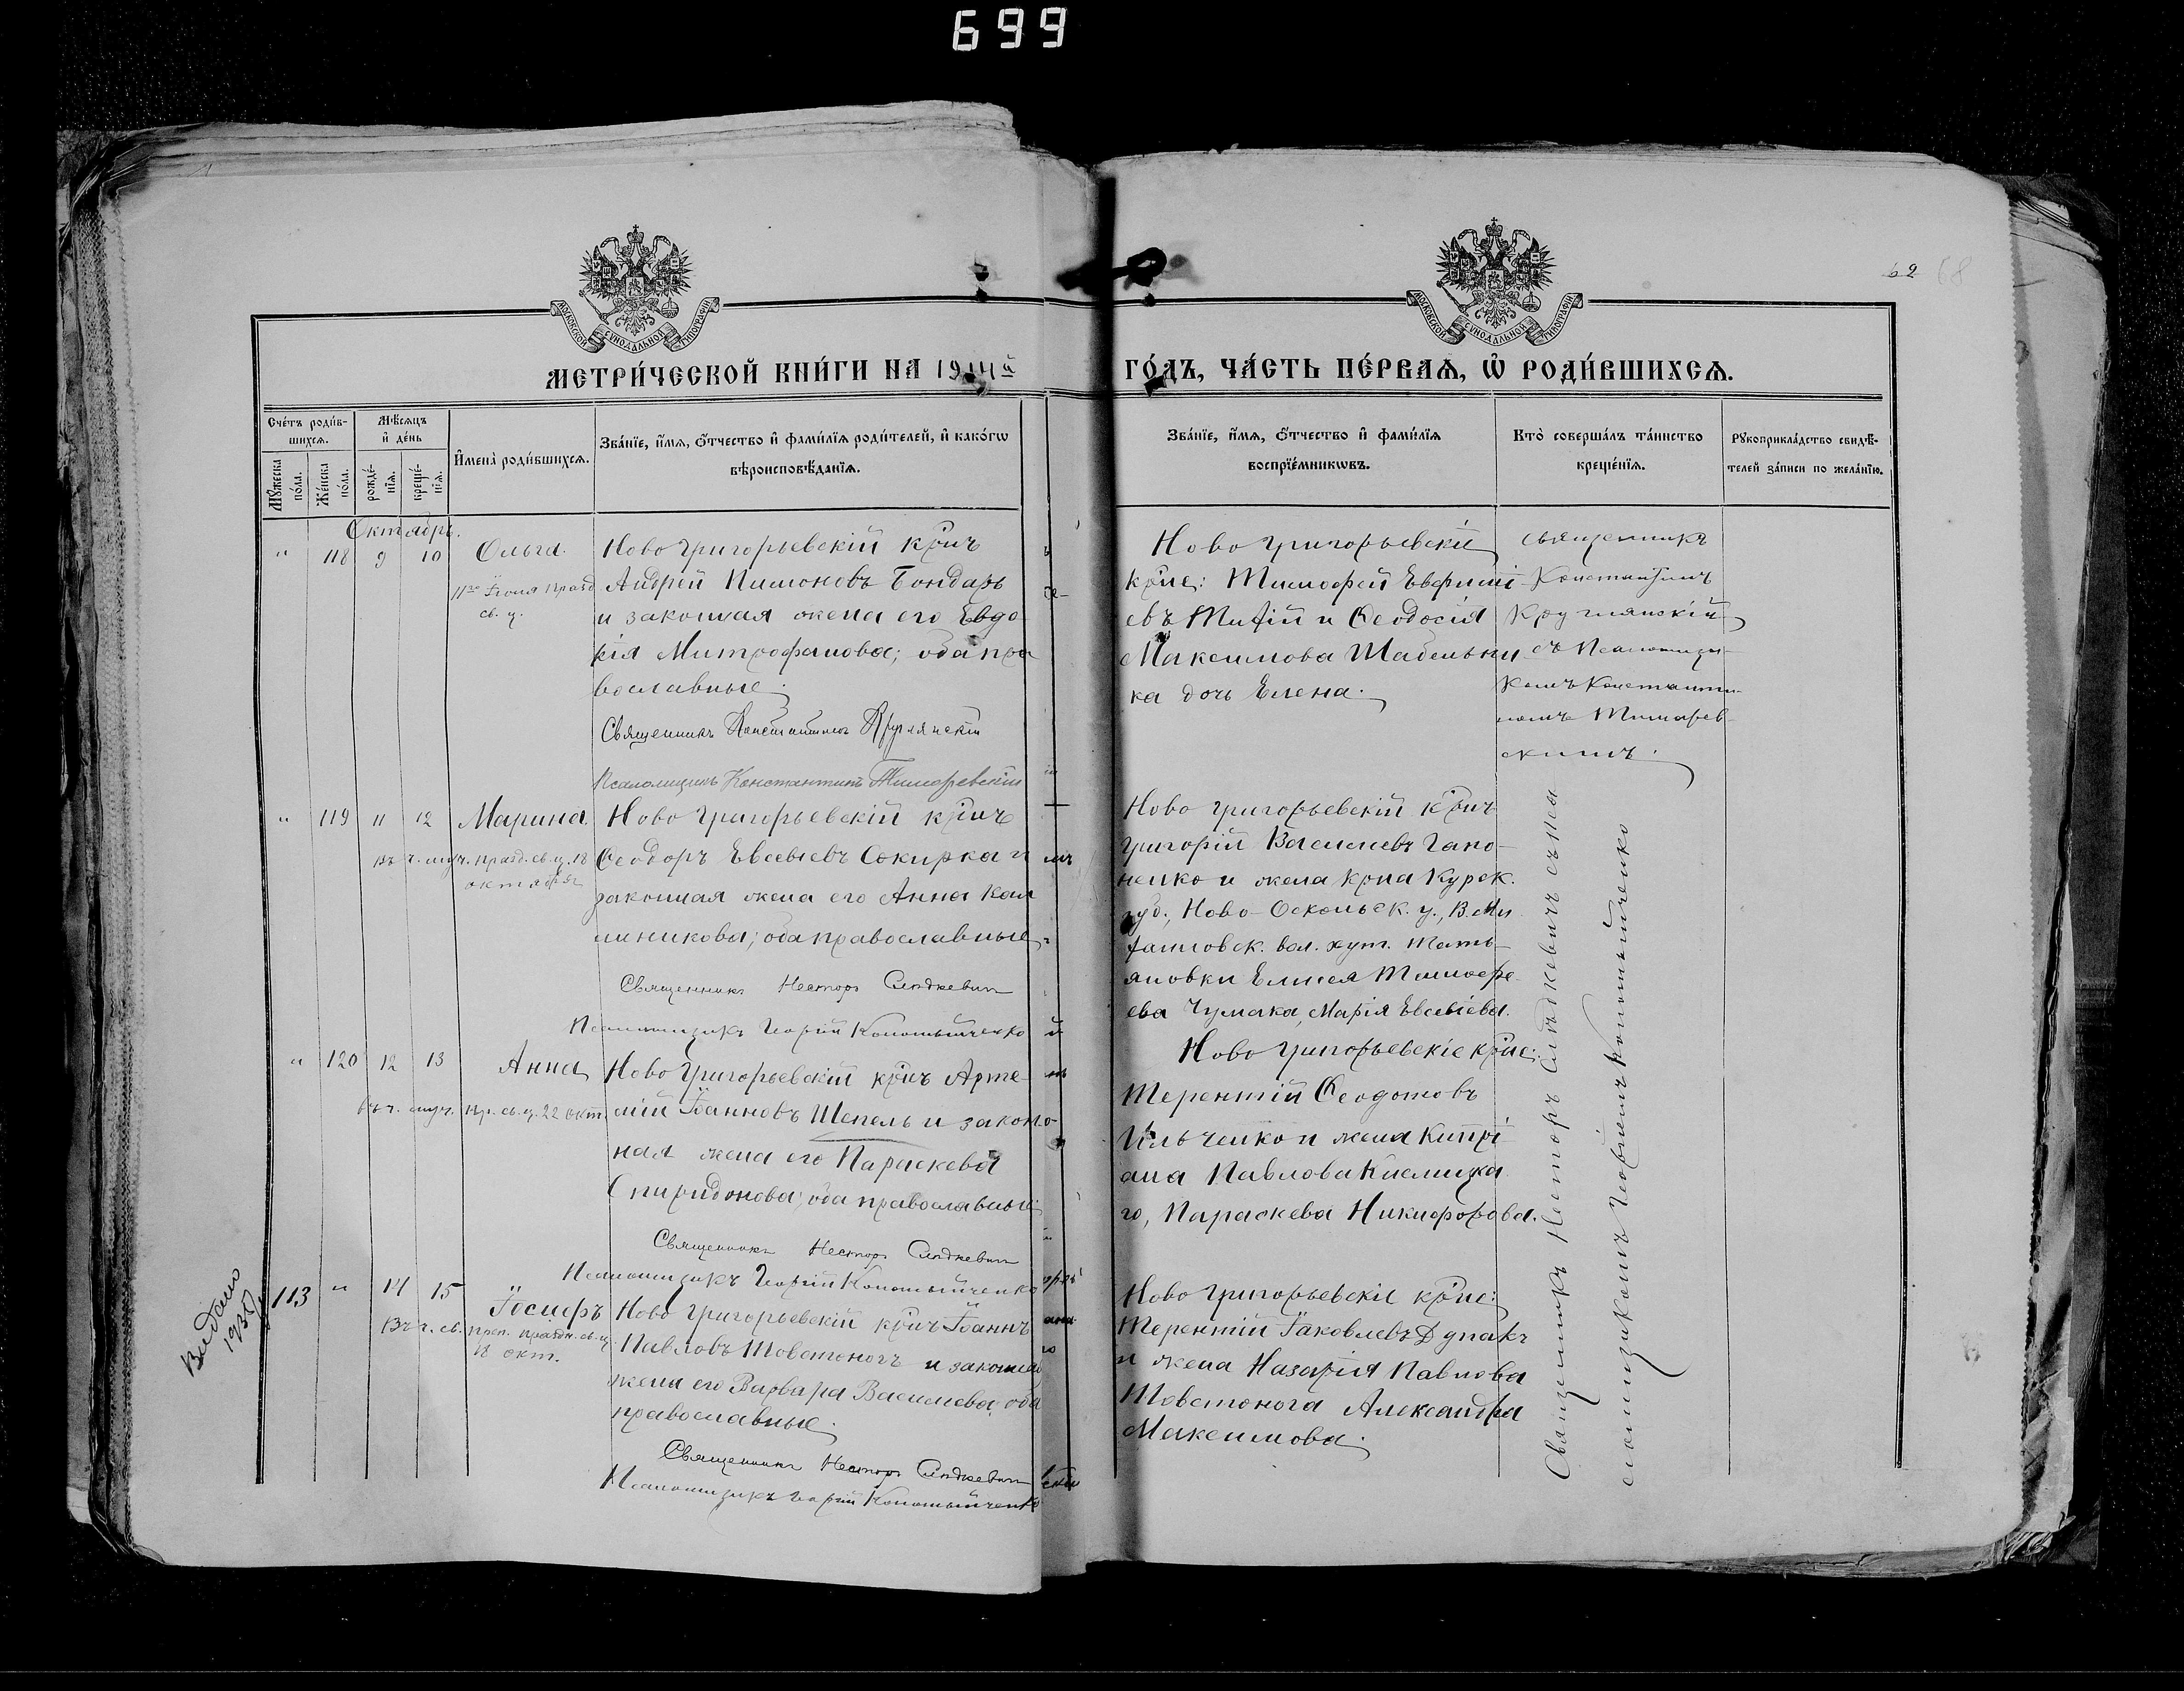 699
62 68
МОСКОВСКОЙ СУНОДАЛЬНОЙ ТИПОГРАФІИ
МОСКОВСКОЙ СУНОДАЛЬНОЙ ТИПОГРАФІИ
МЕТРИ́ЧЕСКОЙ КНИ́ГИ НА 1914й ГО́ДЪ, ЧА́СТЬ ПЕ́РВАѦ, Ѡ҆ РОДИ́ВШИХСѦ.
Сче́тъ роди́в-
шихсѧ.
Мꙋ́жеска по́ла.
Же́нска по́ла.
Мѣ́сѧцъ
и҆ де́нь
рожде́-
нїѧ.
креще́-
нїѧ.
И҆мена̀ роди́вшихсѧ.
Зва́нїе, и҆́мѧ, ѻ҆́тчество и҆ фами́лїѧ роди́телей, и҆ како́гѡ
вѣроисповѣ́данїѧ.
Зва́нїе, и҆́мѧ, ѻ҆́тчество и҆ фами́лїѧ
воспрїе́мникѡвъ.
Кто̀ соверша́лъ та́инство
креще́нїѧ.
Рꙋкоприкла́дство свидѣ́-
телей за́писи по жела́нїю.
Октябрь.
" 118 9 10 Ольга.
11го Іюля празд.
св. ц.
Ново Григорьевскій кр̃нъ
Андрей Пимоновъ Бондарь
и законная жена его Евдо
кія Митрофанова; оба пра
вославные.
Священникъ Константинъ Круглянскій
Псаломщикъ Константинъ Тимофевскій
Ново Григорьевскіе
кр̃не: Тимофей Евфимі
евъ Титій и Ѳеодосія
Максимова Шабельни
ка дочь Елена.
Священникъ
Константинъ
Круглянскій
съ Псаломщи-
комъ Константи-
номъ Тимофев-
скимъ.
" 119 11 12 Марина.
въ ч. муч. празд. св. ц. 18
октября
Ново Григорьевскій кр̃нъ
Ѳеодоръ Евсевіевъ Сокирка и
законная жена его Анна Кал
линикова; оба православные.
Священникъ Несторъ Слѣдкевичъ
Псаломщикъ Георгій Коломыйченко
Ново Григорьевскій кр̃нъ
Григорій Васильевъ Гапо-
ненко и жена кр̃на Курск.
губ., Ново-Оскольск. у.,
вол. хут. Тать-
яновки Елисея Тимофе-
ева Чумака, Марія Евсевіева.
" 120 12 13 Анна
въ ч. муч. пр. св. ц. 22 окт.
Ново Григорьевскій кр̃нъ Арте-
мій Іоанновъ Шепель и закон-
ная жена его Параскева
Спиридонова; оба православные.
Священникъ Несторъ Слѣдкевичъ
Псаломщикъ Георгій Коломыйченко
Ново Григорьевскіе кр̃не:
Терентій Ѳеодотовъ
Ильченко и жена Кипрі-
ана Павлова Кислицка
го, Параскева Никифорова.
Священникъ Несторъ Слѣдкевичъ съ пса
ломщикомъ Георгіемъ Коломыйченко
Видано
193
113 " 14 15 Іосифъ
Въ ч. св. преп. праздн. св. ц.
18 окт.
Ново Григорьевскій кр̃нъ Іоаннъ
Павловъ Товстоногъ и законная
жена его Варвара Васильева; оба
православные.
Священникъ Несторъ Слѣдкевичъ
Псаломщикъ Георгій Коломыйченко
Ново Григорьевскіе кр̃не:
Терентій Іаковлевъ Дупакъ
и жена Назарія Павлова
Товстонога Александра
Максимова.